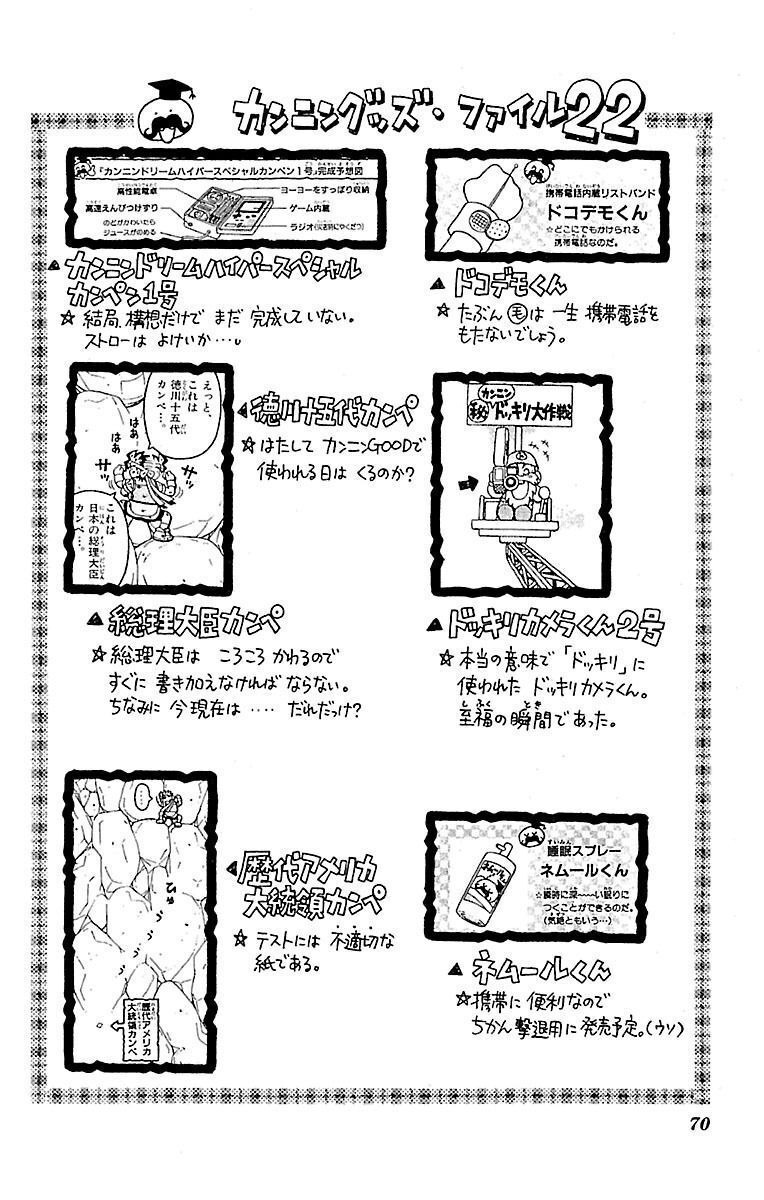 カンニングッズ・ファイル22
『カンニンドリームハイパースペシャルカンペン1号』完成予想図
高性能電卓
ヨーヨーをすっぽり収納
高速えんぴつけずり
ゲーム内蔵
のどがかわいたら
ジュースがのめる
ラジオ(災害時にやくだつ)
▲カンニンドリームハイパースペシャル
カンペン1号
☆結局、構想だけで まだ 完成していない。
ストローは よけいか…。
携帯電話内蔵リストバンド
ドコデモくん
☆どこにでもかけられる
携帯電話なのだ。
▲ドコデモくん
☆たぶん ㊲は 一生 携帯電話を
もたないでしょう。
えっと、
これは
徳川十五代
カンペ…。
はぁ
はぁ
サッ
サッ
これは
日本の総理大臣
カンペ…。
▲徳川十五代カンペ
☆はたして カンニンGOODで
使われる日は くるのか?
カンニン
㊙ドッキリ大作戦
▲総理大臣カンペ
☆総理大臣は ころころ かわるので
すぐに 書き加えなければ ならない。
ちなみに 今現在は ‥‥ だれだっけ?
▲ドッキリカメラくん2号
☆本当の意味で「ドッキリ」に
使われた ドッキリカメラくん。
至福の瞬間であった。
…。
ひゅうぅぅ
歴代アメリカ
大統領カンペ
▲歴代アメリカ
大統領カンペ
☆テストには 不適切な
紙である。
ネムールくん
睡眠スプレー
ネムールくん
☆瞬時に深〜〜い眠りに
つくことができるのだ。
(気絶ともいう…)
▲ネムールくん
☆携帯に 便利なので
ちかん撃退用に発売予定。(ウソ)
70